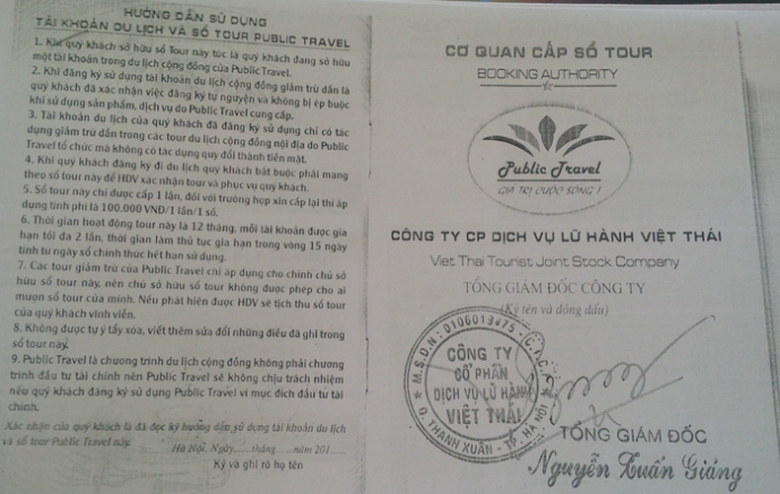 HƯỚNG DẪN SỬ DỤNG
TÀI KHOẢN DU LỊCH VÀ SỔ TOUR PUBLIC TRAVEL
1. Khi quý khách sở hữu sổ Tour này tức là quý khách đang sở hữu
một tài khoản trong du lịch cộng đồng của Public Travel.
2. Khi đăng ký sử dụng tài khoản du lịch cộng đồng giảm trừ dần là
quý khách đã xác nhận việc đăng ký tự nguyện và không bị ép buộc
khi sử dụng sản phẩm, dịch vụ do Public Travel cung cấp.
3. Tài khoản du lịch của quý khách đã đăng ký sử dụng chỉ có tác
dụng giảm trừ dần trong các tour du lịch cộng đồng nội địa do Public
Travel tổ chức mà không có tác dụng quy đổi thành tiền mặt.
4. Khi quý khách đăng ký đi du lịch quý khách bắt buộc phải mang
theo sổ tour này để HDV xác nhận tour và phục vụ quý khách.
5. Sổ tour này chỉ được cấp 1 lần, đối với trường hợp xin cấp lại thì áp
dụng tính phí là 100.000 VNĐ/1 lần/1 sổ.
6. Thời gian hoạt động tour này là 12 tháng, mỗi tài khoản được gia
hạn tối đa 2 lần, thời gian làm thủ tục gia hạn trong vòng 15 ngày
tính từ ngày sổ chính thức hết hạn sử dụng.
7. Các tour giảm trừ của Public Travel chỉ áp dụng cho chính chủ sở
hữu sổ tour này, nên chủ sở hữu sổ tour không được phép cho ai
mượn sổ tour của mình. Nếu phát hiện được HDV sẽ tịch thu sổ tour
của quý khách vĩnh viễn.
8. Không được tự ý tẩy xóa, viết thêm sửa đổi những điều đã ghi trong
sổ tour này.
9. Public Travel là chương trình du lịch cộng đồng không phải chương
trình đầu tư tài chính nên Public Travel sẽ không chịu trách nhiệm
nếu quý khách đăng ký sử dụng Public Travel vì mục đích đầu tư tài
chính.
Xác nhận của quý khách là đã đọc kỹ hướng dẫn sử dụng tài khoản du lịch
và sổ tour Public Travel này.
Hà Nội, Ngày......tháng......năm 201.....
Ký và ghi rõ họ tên
CƠ QUAN CẤP SỔ TOUR
BOOKING AUTHORITY
Public Travel
GIÁ TRỊ CUỘC SỐNG !
CÔNG TY CP DỊCH VỤ LỮ HÀNH VIỆT THÁI
Viet Thai Tourist Joint Stock Company
TỔNG GIÁM ĐỐC CÔNG TY
(Ký tên và đóng dấu)
M.S.D.N: 0106013475 - C.T.C.P
CÔNG TY
CỔ PHẦN
DỊCH VỤ LỮ HÀNH
VIỆT THÁI
Q. THANH XUÂN - TP. HÀ NỘI
TỔNG GIÁM ĐỐC
Nguyễn Xuân Giảng